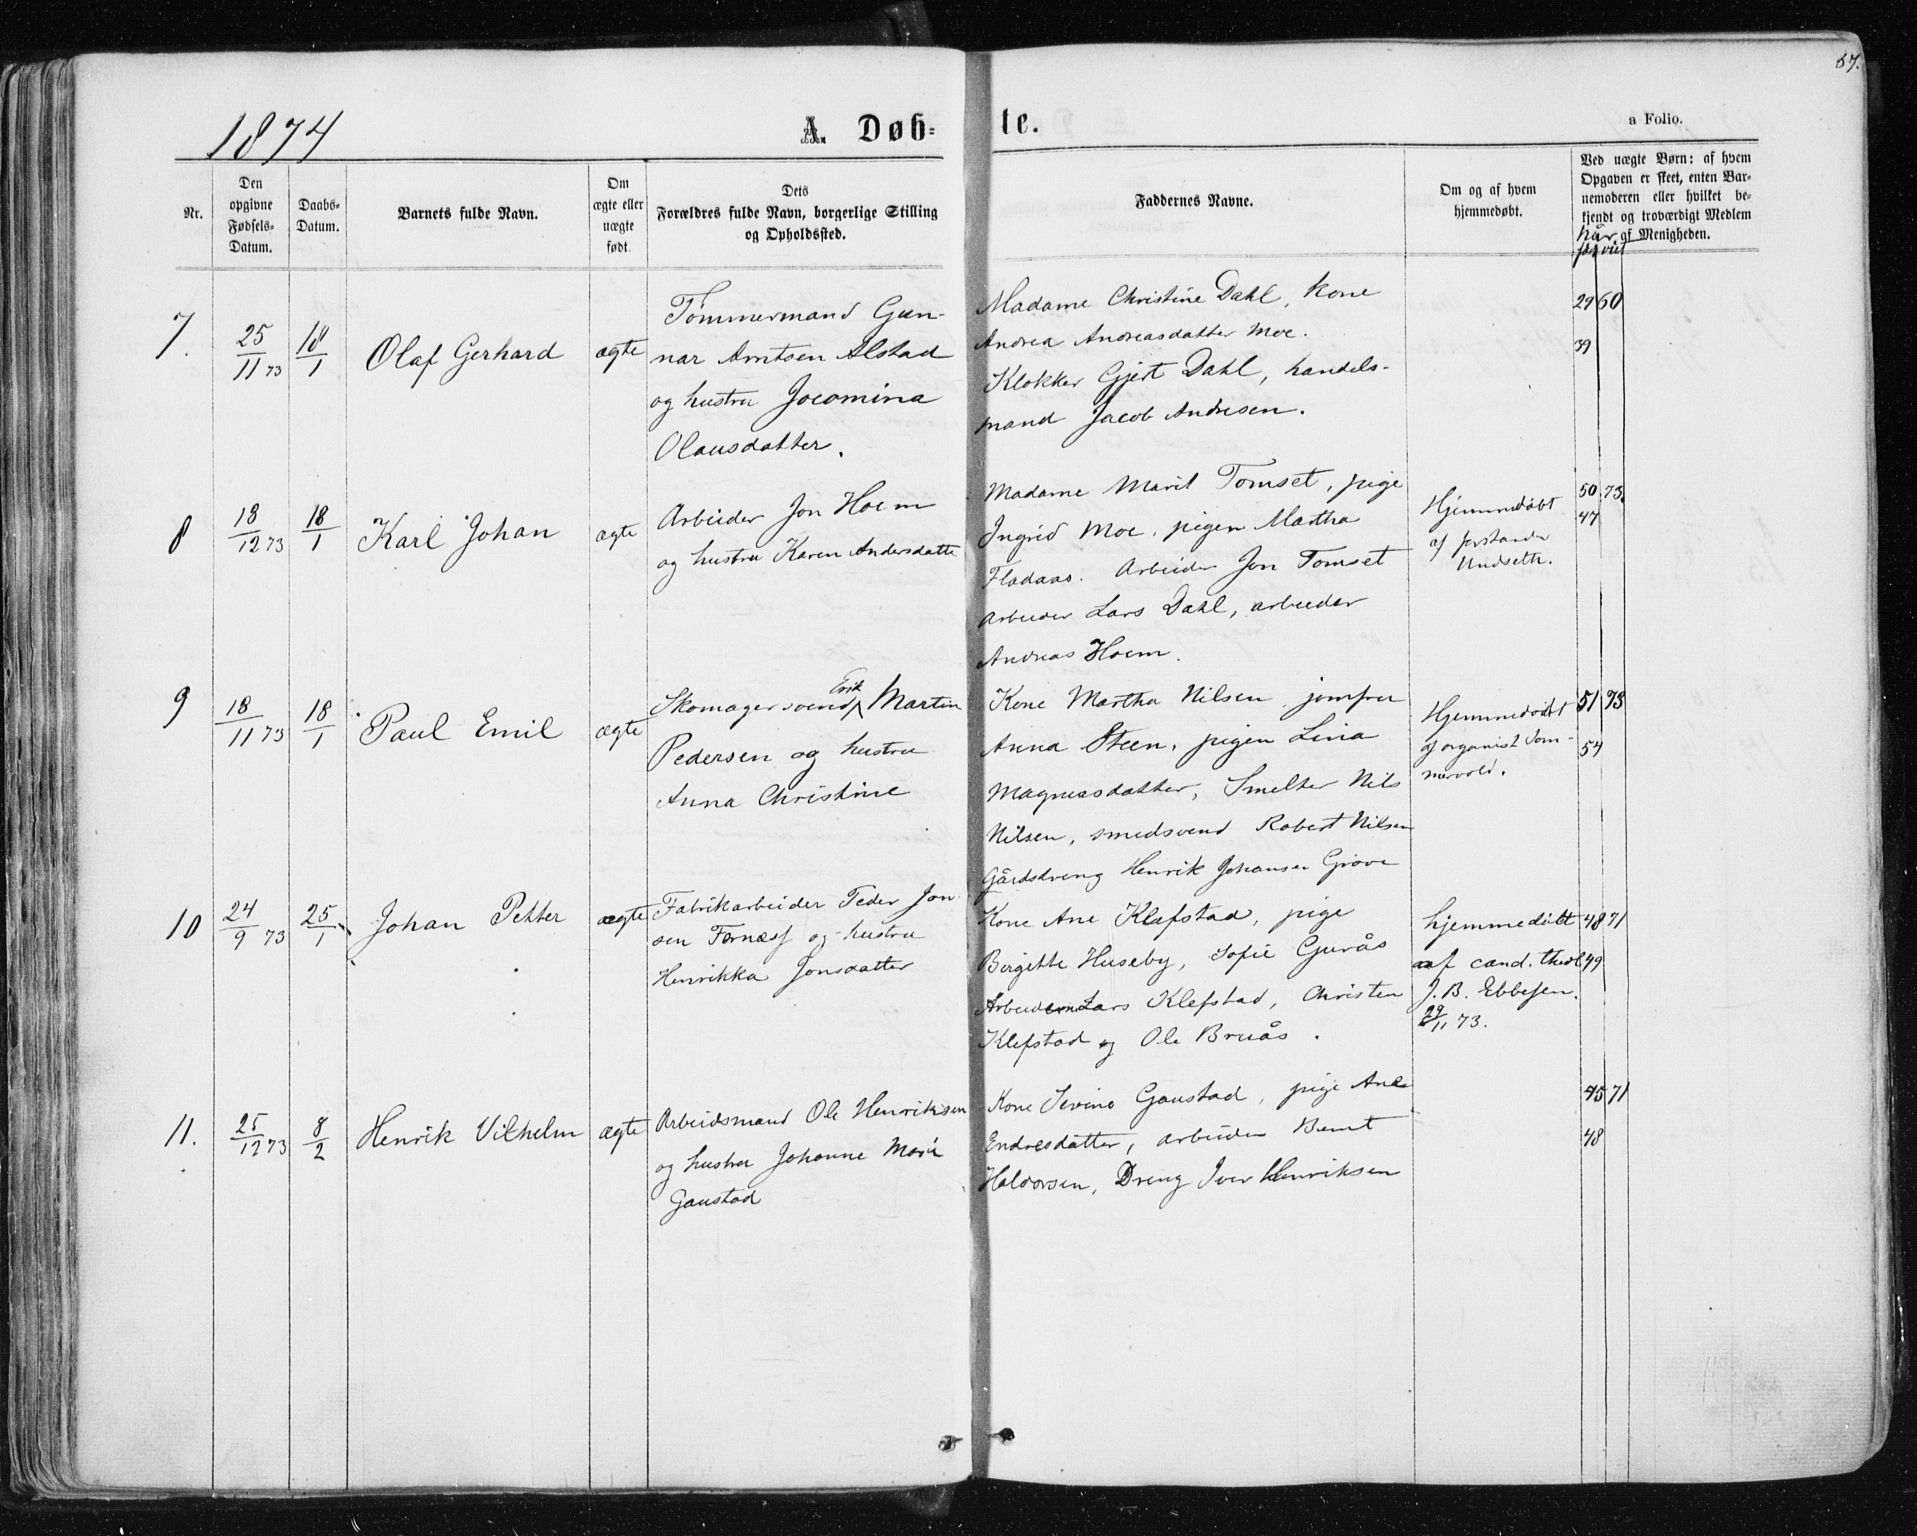 67.
1874
A. Døb-
te.
a Folio.
Nr.
Den
opgivne
Fødsels-
Datum.
Daabs-
Datum.
Barnets fulde Navn.
Om
ægte eller
uægte
født.
Dets
Forældres fulde Navn, borgerlige Stilling
og Opholdssted.
Faddernes Navne.
Om og af hvem
hjemmedøbt.
Ved uægte Børn: af hvem
Opgaven er skeet, enten Bar-
nemoderen eller hvilket be-
kjendt og troværdigt Medlem
af Menigheden.
når
7.
25/11 73
18/1
Olaf Gerhard
ægte
Tømmermand Gun-
nar Arntsen Alstad
og hustru Jocomina
Olausdatter.
Madame Christine Dahl, kone
Andrea Andreasdatter Moe.
Klokker Gjert Dahl, handels-
mand Jacob Andresen.
29 60
39
8
18/12 73
18/1
Karl Johan
ægte
Arbeider Jon Hoem
og hustru Karen Andersdatte
Madame Marit Tomset, pige
Ingrid Moe, pigen Martha
Fladaas. Arbeider Jon Tomset
Arbeider Lars Dahl, arbeider
Andreas Hoem.
Hjemmedøbt
af forstander
Undseth.
50 73
47
9
18/11 73
18/1
Paul Emil
ægte
Skomagersvend Erik Martin
Pedersen og hustru
Anna Christine
Kone Martha Nilsen, jomfru
Anna Steen, pigen Lina
Magnusdatter, Smelter Nils
Nilsen, smedsvend Robert Nilsen
Gårdsdreng Henrik Johansen Grove
Hjemmedøbt
af organist Som-
mervold.
51 73
54
10
24/9 73
25/1
Johan Petter
ægte
Fabrikarbeider Peder Jon-
sen Fornæss og hustru
Henrikka Jonsdatter
Kone Ane Klefstad, pige
Bergitte Huseby, Sofie Gjurås
Arbeiderne Lars Klefstad, Christen
Klefstad og Ole Bruås.
hjemmedøbt
af cand. theol
J. B. Ebbesen.
29/11 73.
48 71
49
11.
25/12 73
8/2
Henrik Vilhelm
ægte
Arbeidsmand Ole Henriksen
og hustru Johanne Marie
Gaustad
Kone Sevine Gaustad, pige Ane
Endresdatter, arbeider Bernt
Haldorsen, Dreng Iver Henriksen
45 71
48